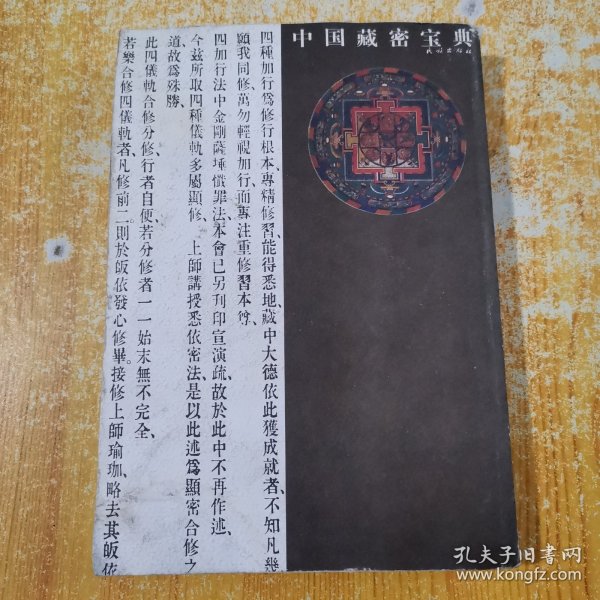 中国藏密宝典
民族出版社
四種加行爲修行根本、專精修習、能得悉地、藏中大德依此獲成就者、不知凡幾
願我同修、萬勿輕視加行、而專注重修習本尊、
四加行法中金剛薩埵懺罪法、本會已另刊印宣演疏、故於此中不再作述、
今兹所取四種儀軌多屬顯修、上師講授悉依密法、是以此述爲顯密合修之
道故爲殊勝、
此四儀軌合修分修、行者自便、若分修者一一始末無不完全、
若樂合修四儀軌者、凡修前二、則於皈依發心修畢。接修上師瑜珈、略去其皈依
孔夫子旧书网
www.kongfz.com